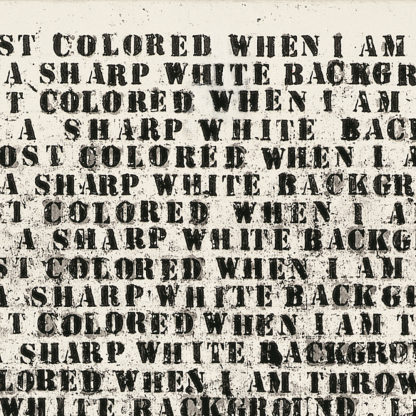 ST COLORED WHEN I AM
A SHARP WHITE BACKGR
T COLORED WHEN I AM
A SHARP WHITE BAC
OST COLORED WHEN I A
A SHARP WHITE BACKGR
T COLORED WHEN I A
A SHARP WHITE BACKG
ST COLORED WHEN I AM
A SHARP WHITE BACKG
T COLORED WHEN I AM T
SHARP WHITE BACKGROU
LORED WHEN I AM THROW
WHITE BACKGROUND